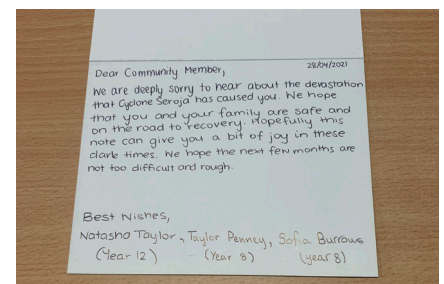 28/04/2021
Dear Community Member,
We are deeply sorry to hear about the devastation
that Cyclone Seroja has caused you. We hope
that you and your family are safe and
on the road to recovery. Hopefully this
note can give you a bit of joy in these
dark times. We hope the next few months are
not too difficult and rough.
Best Wishes,
Natasha Taylor, Taylor Penney, Sofia Burrows
(Year 12) - (Year 8) (year 8)